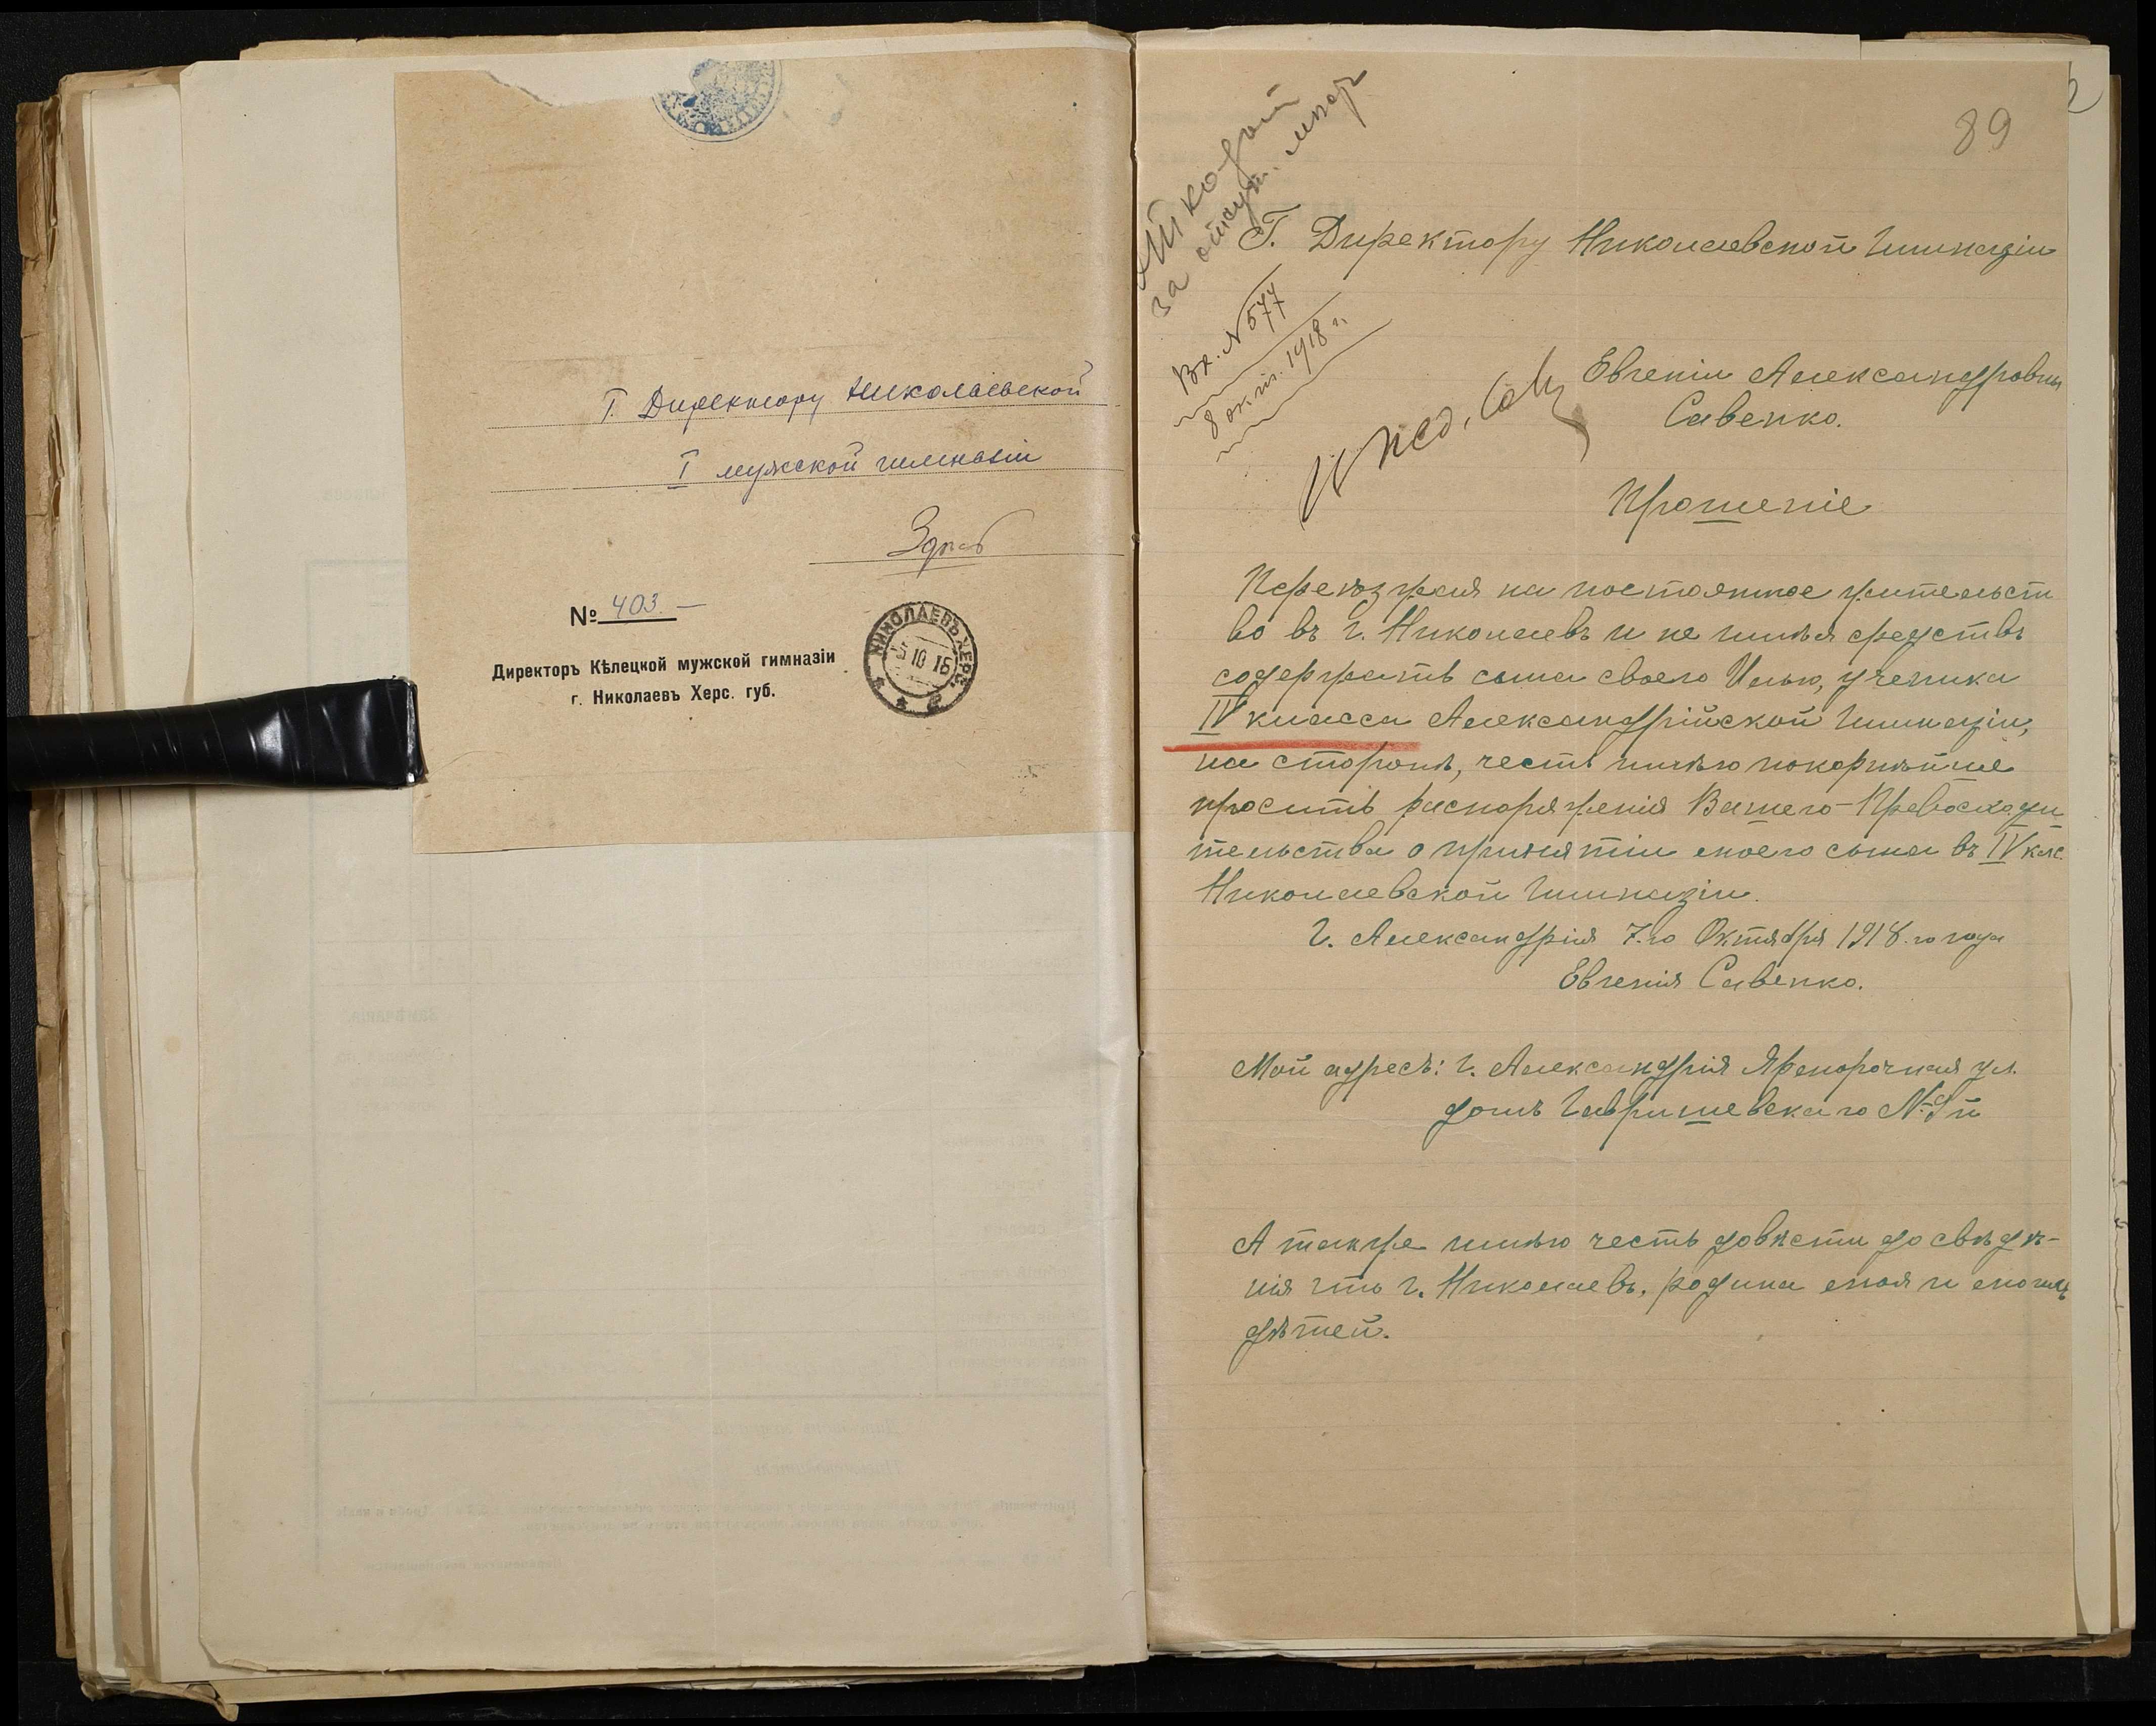 Г. Директору Николаевской
I мужской гимназіи
Здѣсь
№ 403. —
Директоръ Кѣлецкой мужской гимназіи
г. Николаевъ Херс. губ.
НИКОЛАЕВЪ ХЕРС.
89
за отсут.
Вх. N 577
8 окт. 1918 г.
Г. Директору Николаевской Гимназіи
Евгеніи Александровны
Савенко.
Прошеніе
Переѣзжая на постоянное жительст
во въ г. Николаевъ и не имѣя средствъ
содержать сына своего Илью, ученика
IV класса Александрійской Гимназіи,
на сторонѣ, честь имѣю покорнѣйше
просить распоряженія Вашего-Превосходи
тельства о принятіи моего сына въ IV клс.
Николаевской Гимназіи.
Г. Александрія 7.го Октября 1918.го года
Евгенія Савенко.
Мой адресъ: г. Александрія Ярморочная ул.
домъ Гавришевскаго №
А также имѣю честь довѣсти до свѣдѣ-
нія что г. Николаевъ, родина моя и моихъ
дѣтей.